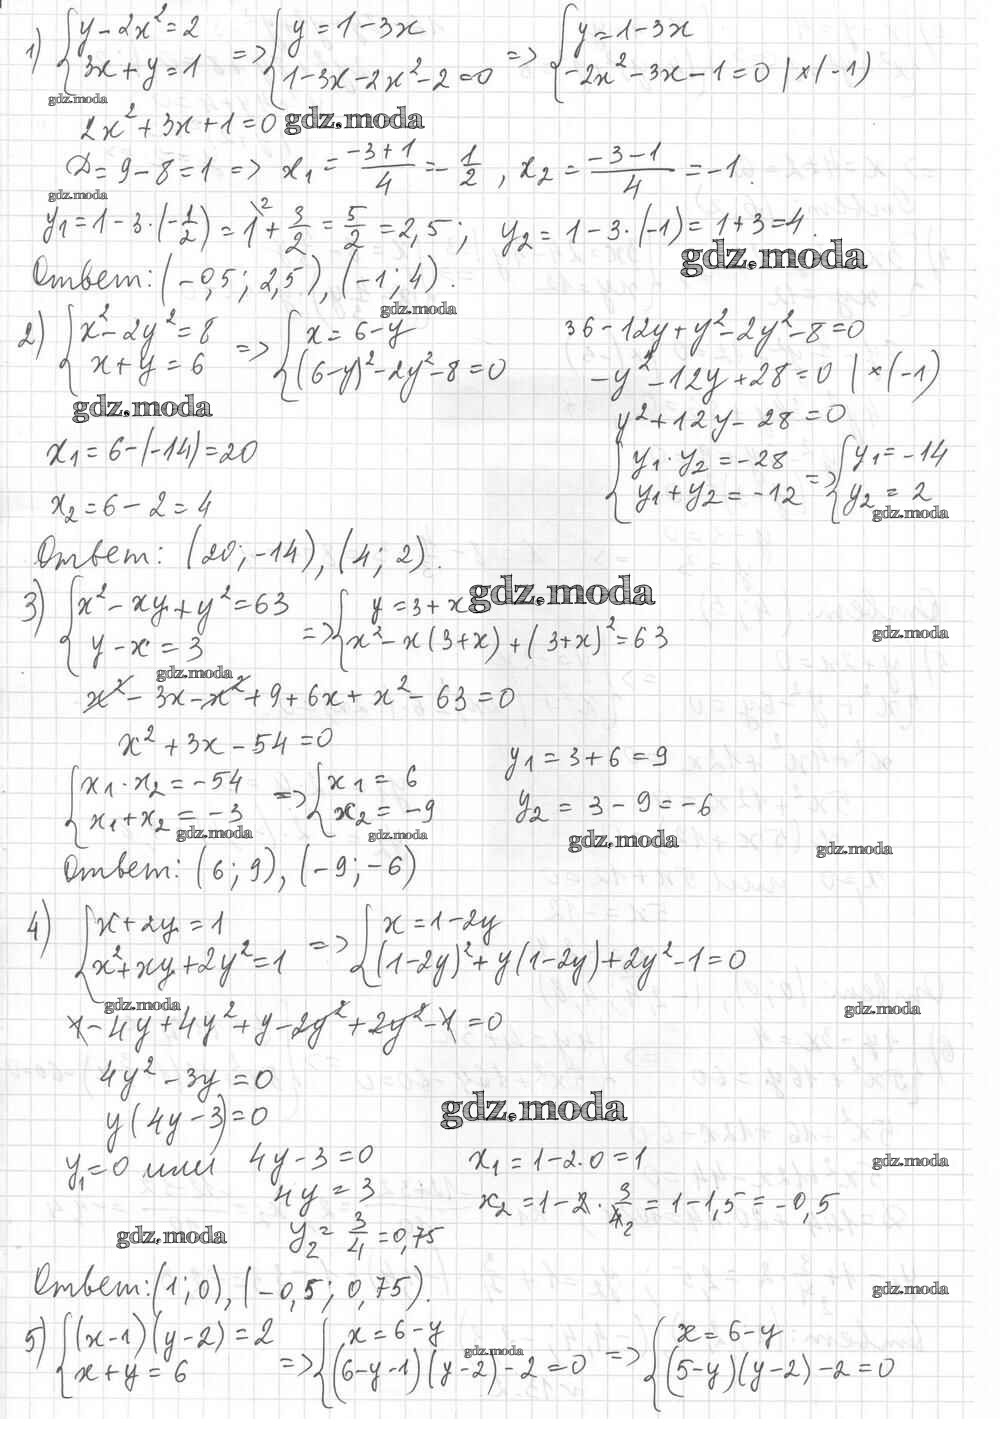 1) { y-2x²=2 ; 3x+y=1 => { y=1-3x ; 1-3x-2x²-2=0 => { y=1-3x ; -2x²-3x-1=0 |×(-1)
gdz.moda
2x²+3x+1=0 gdz.moda
D=9-8=1 => x₁=(-3+1)/4=-1/2, x₂=(-3-1)/4=-1.
gdz.moda
y₁=1-3·(-1/2)=1\²+3/2=5/2=2,5; y₂=1-3·(-1)=1+3=4.
gdz.moda
Ответ: (-0,5; 2,5), (-1; 4).
gdz.moda
2) { x²-2y²=8 ; x+y=6 => { x=6-y ; (6-y)²-2y²-8=0
36-12y+y²-2y²-8=0
-y²-12y+28=0 |×(-1)
gdz.moda
y²+12y-28=0
x₁=6-(-14)=20
{ y₁·y₂=-28 ; y₁+y₂=-12 => { y₁=-14 ; y₂=2
x₂=6-2=4
gdz.moda
Ответ: (20; -14), (4; 2).
gdz.moda
3) { x²-xy+y²=63 ; y-x=3 => { y=3+x ; x²-x(3+x)+(3+x)²=63
gdz.moda
gdz.moda
x²-3x-x²+9+6x+x²-63=0
x²+3x-54=0
{ x₁·x₂=-54 ; x₁+x₂=-3 => { x₁=6 ; x₂=-9
y₁=3+6=9
y₂=3-9=-6
gdz.moda
gdz.moda
gdz.moda
gdz.moda
Ответ: (6; 9), (-9; -6)
4) { x+2y=1 ; x²+xy+2y²=1 => { x=1-2y ; (1-2y)²+y(1-2y)+2y²-1=0
gdz.moda
gdz.moda
1-4y+4y²+y-2y²+2y²-1=0
4y²-3y=0
gdz.moda
y(4y-3)=0
y₁=0 или 4y-3=0
x₁=1-2·0=1
gdz.moda
4y=3
x₂=1-2·3/4₂=1-1,5=-0,5
gdz.moda
y₂=3/4=0,75
Ответ: (1; 0), (-0,5; 0,75).
gdz.moda
5) { (x-1)(y-2)=2 ; x+y=6 => { x=6-y ; (6-y-1)(y-2)-2=0 => { x=6-y ; (5-y)(y-2)-2=0
gdz.moda